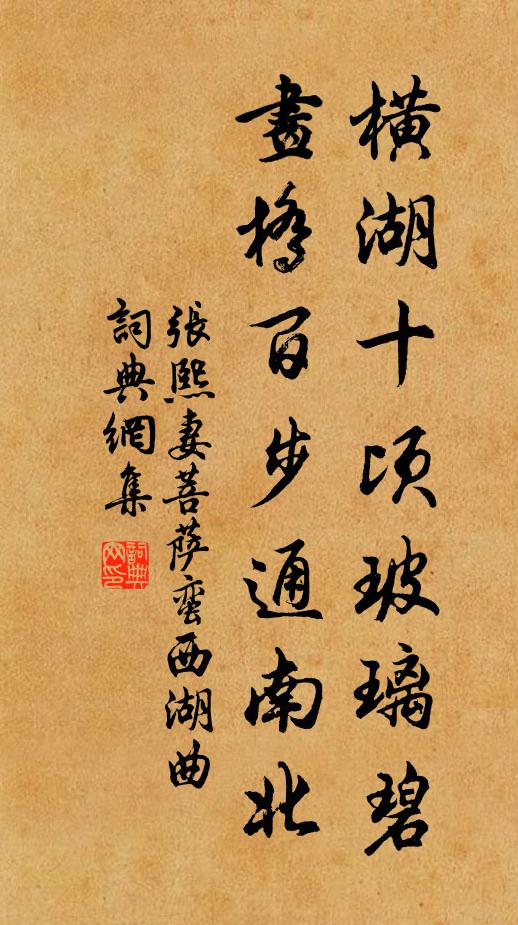 橫湖十頃玻璃碧
畫橋百步通南北
張熙妻菩薩蛮西湖曲
詞典網集
詞典網印